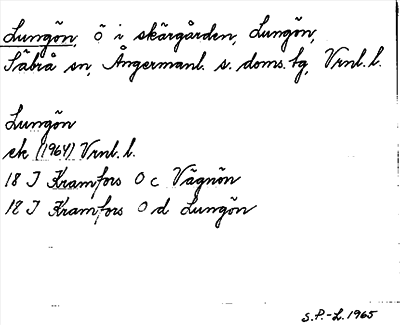 Lungön, ö i skärgården, Lungön,
Säbrå sn, Ångermanl. s. doms. tg, Vrnl. l.
Lungön
ek (1964) Vrnl. l.
18 I Kramfors 0 c Vägnön
18 I Kramfors 0 d Lungön
S.P.-L. 1965